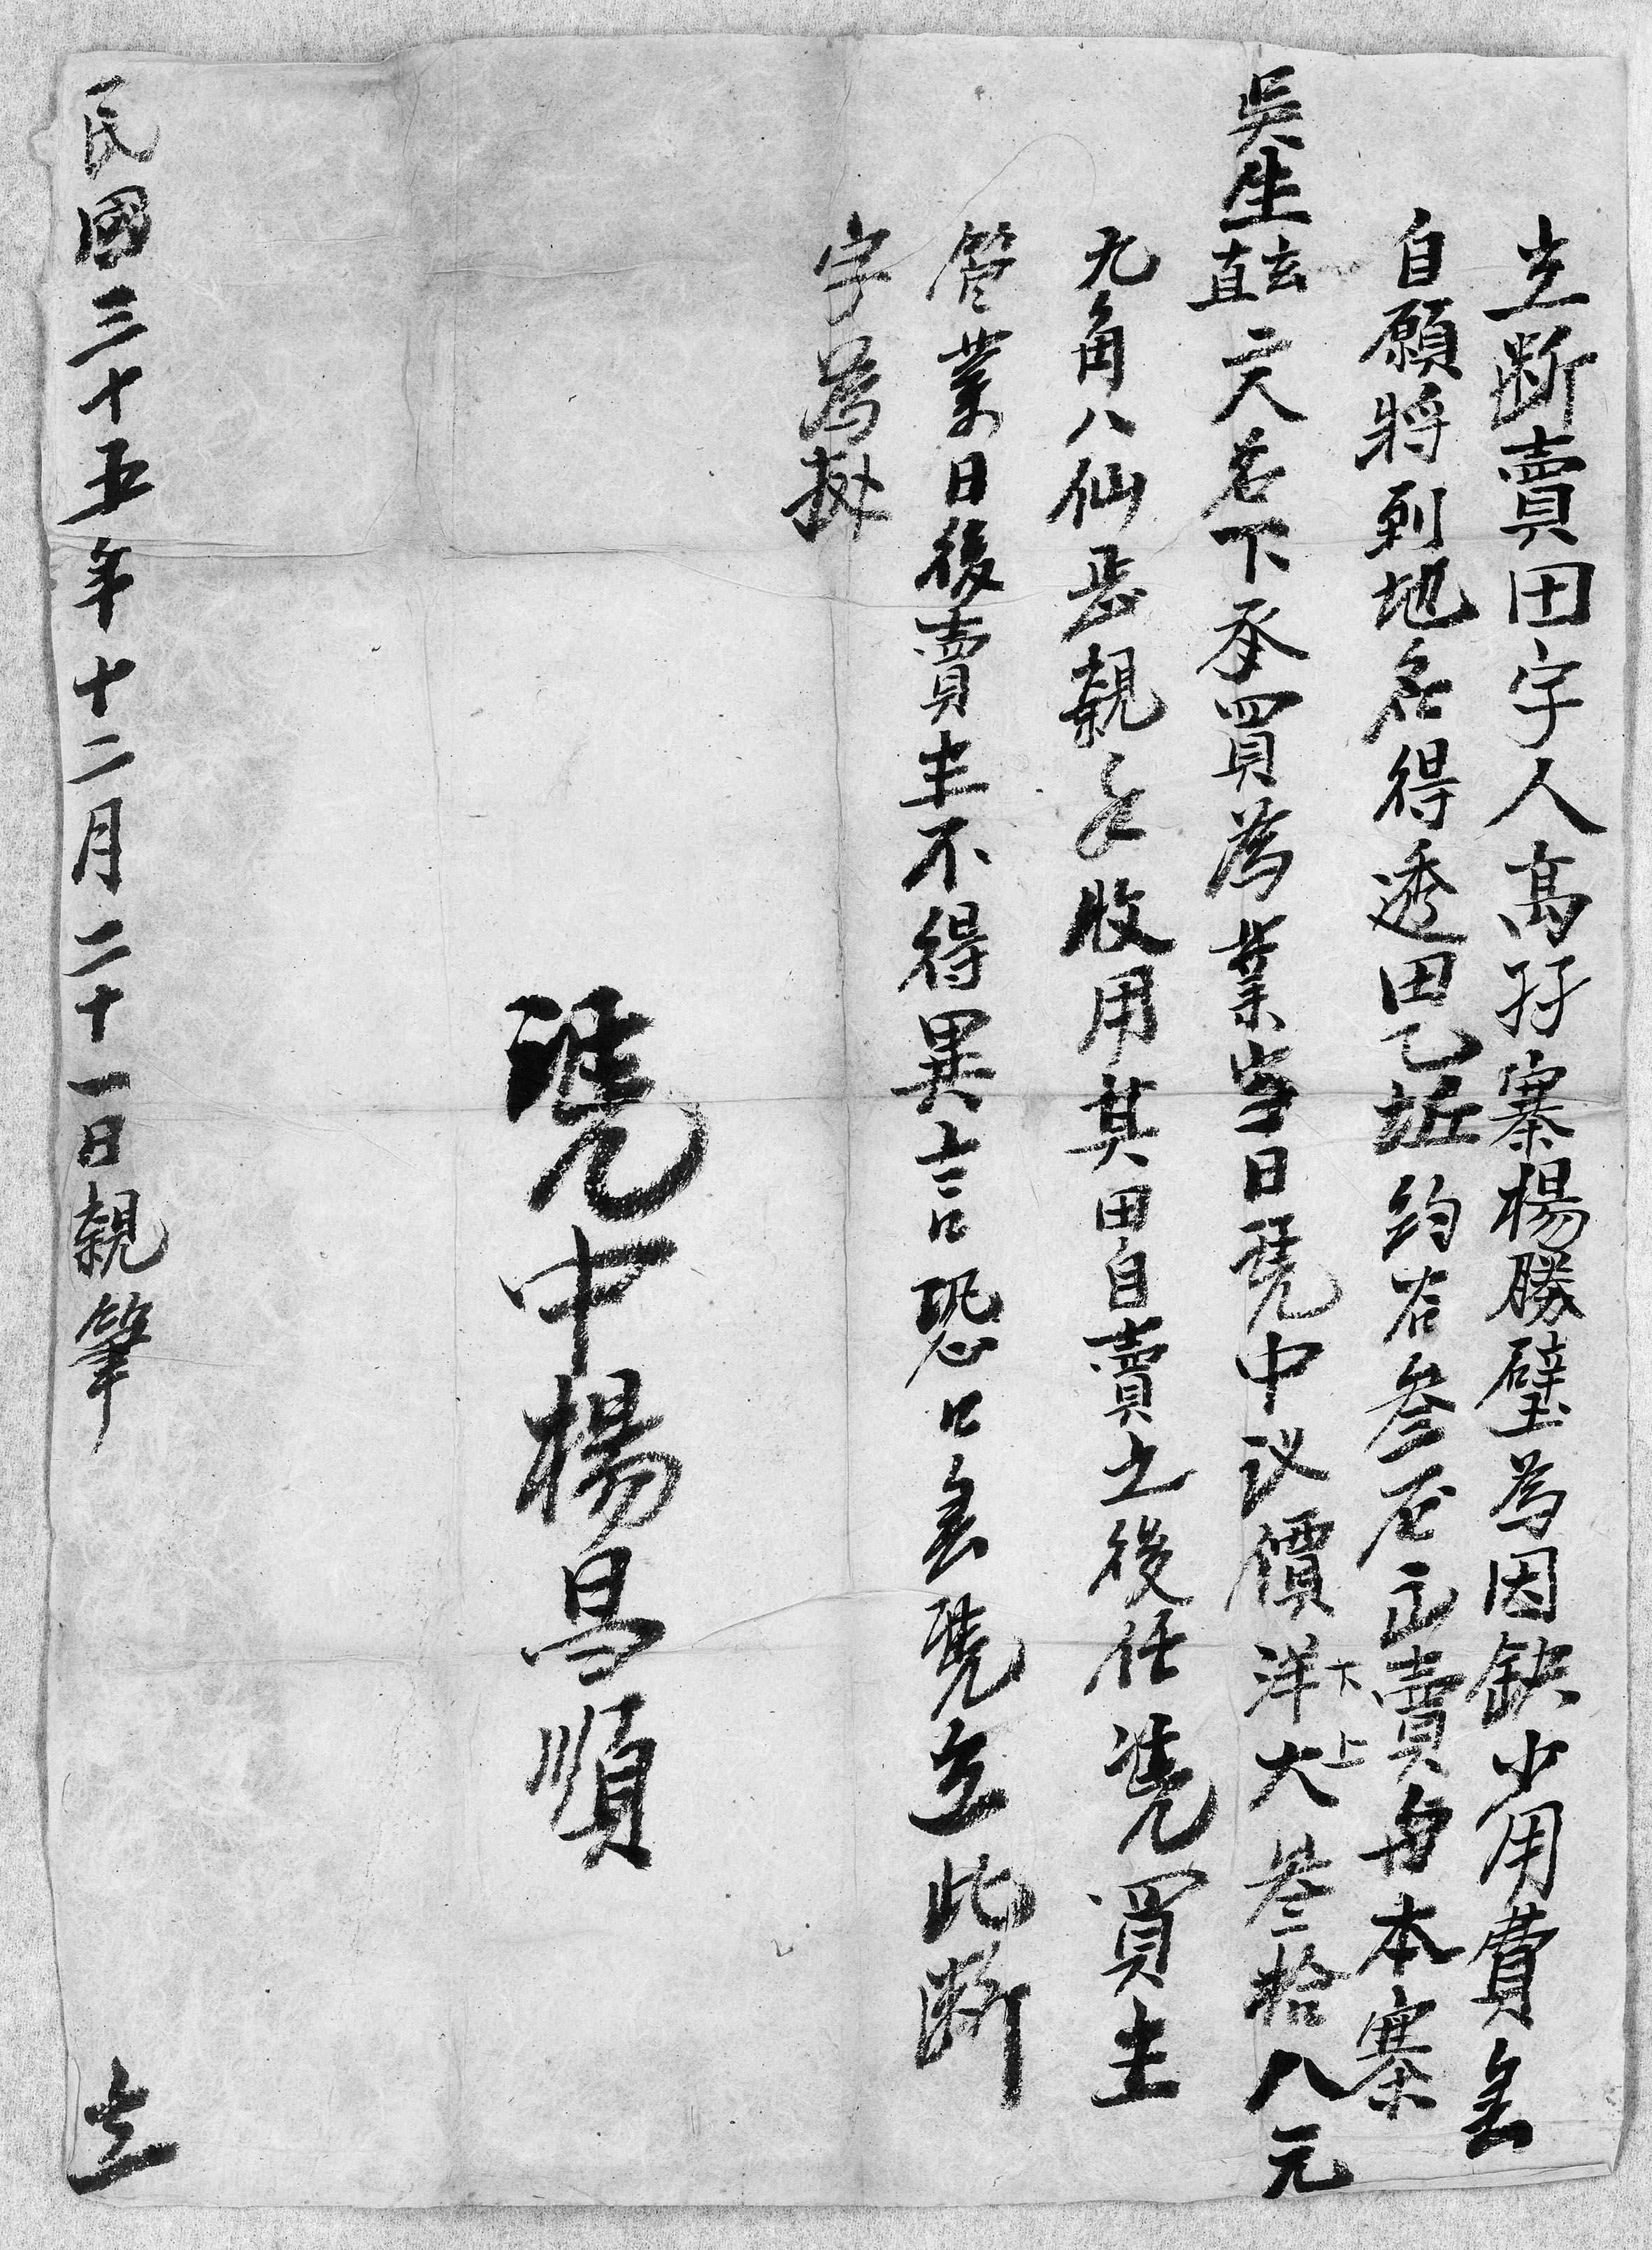 立斷賣田字人高孖寨楊勝璧為因缺少用費無
自願將到地名得透田乙坵約谷叁石正賣与本寨
吳生玄直二人名下承買為業当日凴中议價洋大叁拾八元
下上
九角八仙正親手收用其田自賣之後任凴買主
管業日後賣主不得異言恐口無凴立此斷
字為拠
凴中楊昌順
民國三十五年十二月二十一日親筆 立